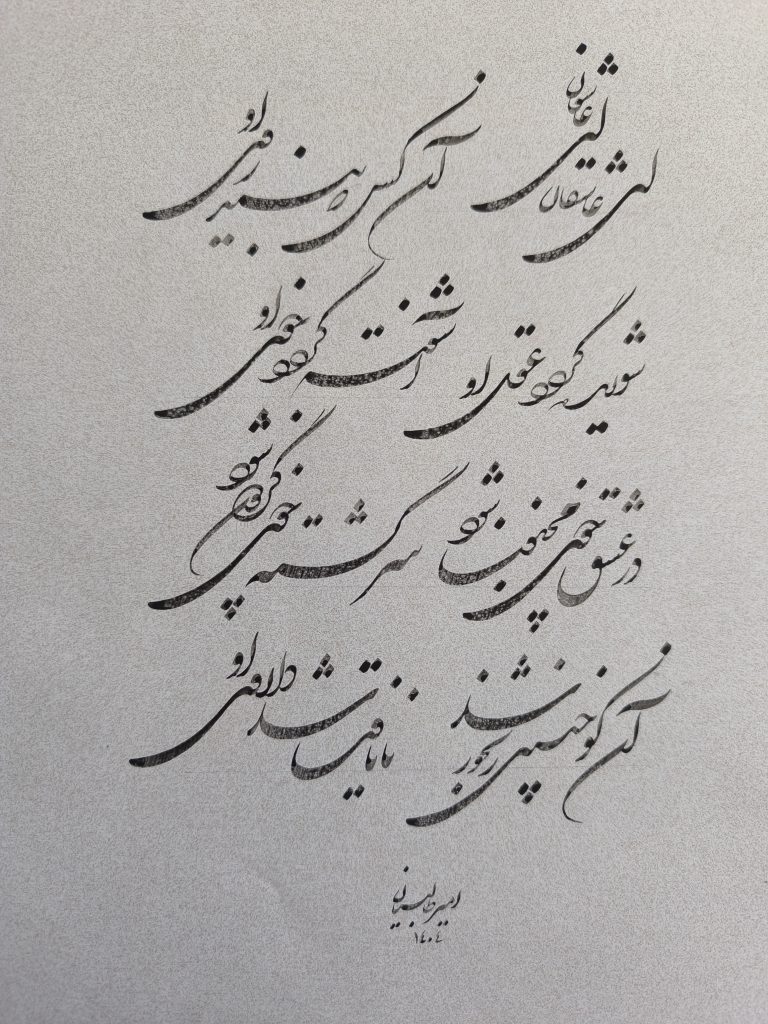 ای عاشقان ای عاشقان آن کس که بیند روی او
شوریده گردد عقل او آشفته گردد خوی او
در عشق چون مجنون شود سرگشته چون گردون شود
آن کو چنین رنجور شد نایافت شد داروی او
امیر طالبیان
۱۴۰۴